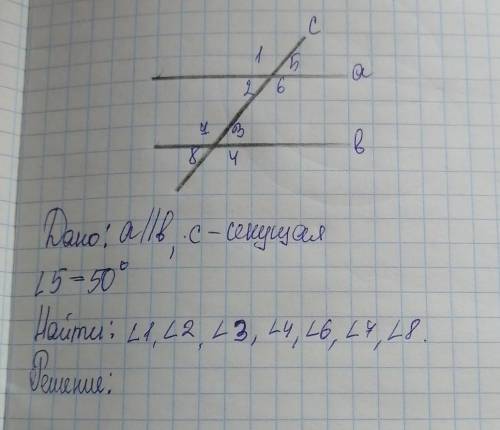 c
1 5 a
2 6
7 3
8 4 в
Дано: a||в, c - секущая
∠5=50°
Найти: ∠1, ∠2, ∠3, ∠4, ∠6, ∠7, ∠8.
Решение: